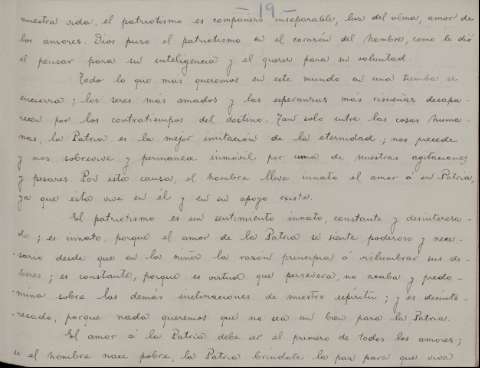 - 19 -
nuestra vida, el patriotismo es compañero inseparable, luz del alma, amor de
los amores. Dios puso el patriotismo en el corazón del hombre, como le dió
el pensar para su inteligencia y el querer para su voluntad.
Todo lo que mas queremos en este mundo en una tumba se
encierra; los seres más amados y las esperanzas más risueñas desapa-
recen por los contratiempos del destino. Tan solo entre las cosas huma-
nas, la Patria es la mejor imitación de la eternidad; nos precede
y nos sobrevive y permanece inmóvil por de nuestras agitaciones
y pesares. Por esta causa, el hombre lleva innato el amor á su Patria,
ya que esta vive en él y en su apoyo existe.
El patriotismo es un sentimiento innato, constante y desinteresa-
do; es innato, porque el amor de la Patria se siente poderoso y nece-
sario desde que en la niñez la razón principia á vislumbrar sus de-
beres; es constante, porque es virtud que persevera, no cambia y predo-
mina sobre las demás inclinaciones de nuestro espíritu; y es desinte-
resado, porque nada queremos que no sea un bien para la Patria.
El amor á la Patria debe ser el primero de todos los amores;
si el hombre nace pobre, la Patria bríndale la paz para que viva